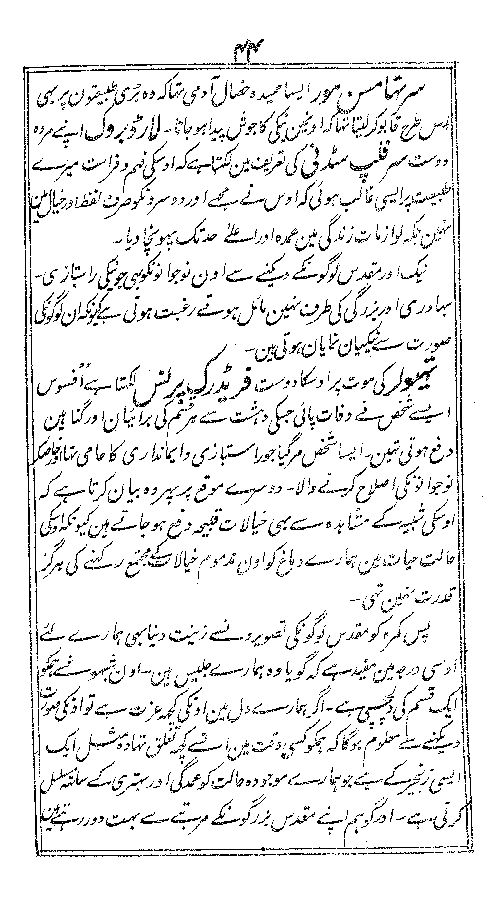 ۴۴
سر تہامس مور ایسا حمیدہ خصال آدمی تہا کہ وہ جری طبیعتون پر بہی
اس طرح قابو کر لیتا تہا کہ اونمین نیکی کا جوش پیدا ہو جاتا۔ لارڈ بروک اپنے مردہ
دوست سر فلپ سڈنی کی تعریف مین لکہتا ہے کہ اوسکی فہم و فراست میرے
طبیعت پر ایسی غالب ہوئی کہ اوس نے مجھے اور دوسرونکو صرف لفظ اور خیال مین
نہین بلکہ لوازمات زندگی مین عمدہ اور اعلے حد تک پہونچا دیا۔
نیک اور مقدس لوگونکے دیکہنے سے اون نوجوانونکو بہی جونیکی راستبازی۔
بہادری اور بزرگی کی طرف نہین مائل ہوتے رغبت ہوتی ہے کیونکہ ان لوگونکی
صورت سے نیکیان نمایان ہوتی ہین۔
نیبوہر کی موت پر اوسکا دوست فریڈرک پرلنس لکہتا ہے افسوس
ایسے شخص نے وفات پائی جسکی دہشت سے ہر قسم کی برائیان اور گناہین
دفع ہوتی تہین۔ ایسا شخص مر گیا جو راستبازی و ایمانداری کا حامی تہا اور خاصکر
نوجوانونکی اصلاح کرنے والا۔ دوسرے موقع پر پہر وہ بیان کرتا ہے کہ
اوسکی شبیہ کے مشاہدہ سے بہی خیالات قبیحہ دفع ہو جاتے ہین کیونکہ اوسکی
حالت حیات مین ہمارے دماغ کو اون مذموم خیالات کے مجتمع رکہنے کی ہرگز
قدرت نہین تہی۔
پس کمرہ کو مقدس لوگونکی تصویرونسے زینت دینا بہی ہمارے لئے
اوسی درجہ مین مفید ہے کہ گویا وہ ہمارے جلیس ہین۔ اون شبہونسے ہمکو
ایک قسم کی دلچسپی ہے۔ اگر ہمارے دل مین اونکی کچہ عزت ہے تو اونکی صورت
دیکہنے سے معلوم ہوگا کہ ہمکو کسی وقت مین انسے کچہ تعلق تہا وہ مثل ایک
ایسی زنجیر کے ہے جو ہمارے موجودہ حالت کو عمدگی اور بہتری کے ساتہ مسلسل
کرتی ہے۔ اور گو ہم اپنے مقدس بزرگونکے مرتبے سے بہت دور رہتے ہین